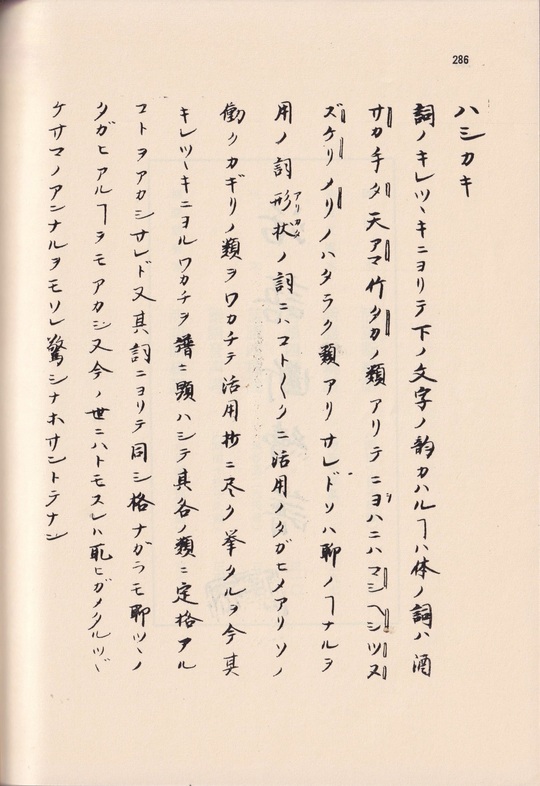 286
ハシカキ
詞ノキレツヽキニヨリテ下ノ文字ノ韵カハルヿハ体ノ詞ハ酒
サカ手タ天アマ竹タカノ類アリテニヨハニハマシヘシツヌ
ズケリノリノハタラク類アリサレドソハ聊ノヿナルヲ
用ノ詞形状アリカタノ詞ニハコト〳〵クニ活用ノタガヒメアリソノ
働クカギリノ類ヲワカチテ活用抄ニ尽ク挙タルヲ今其
キレツヽキニヨルワカチヲ譜ニ顕ハシテ其各ノ類ニ定格アル
コトヲアカシサレド又其詞ニヨリテ同シ格ナガラモ聊ツヽノ
タガヒアルヿヲモアカシ又今ノ世ニハトモスレハ乱ヒガメタルツヾ
ケサマノアンナルヲモソレ驚シナホサントテナン